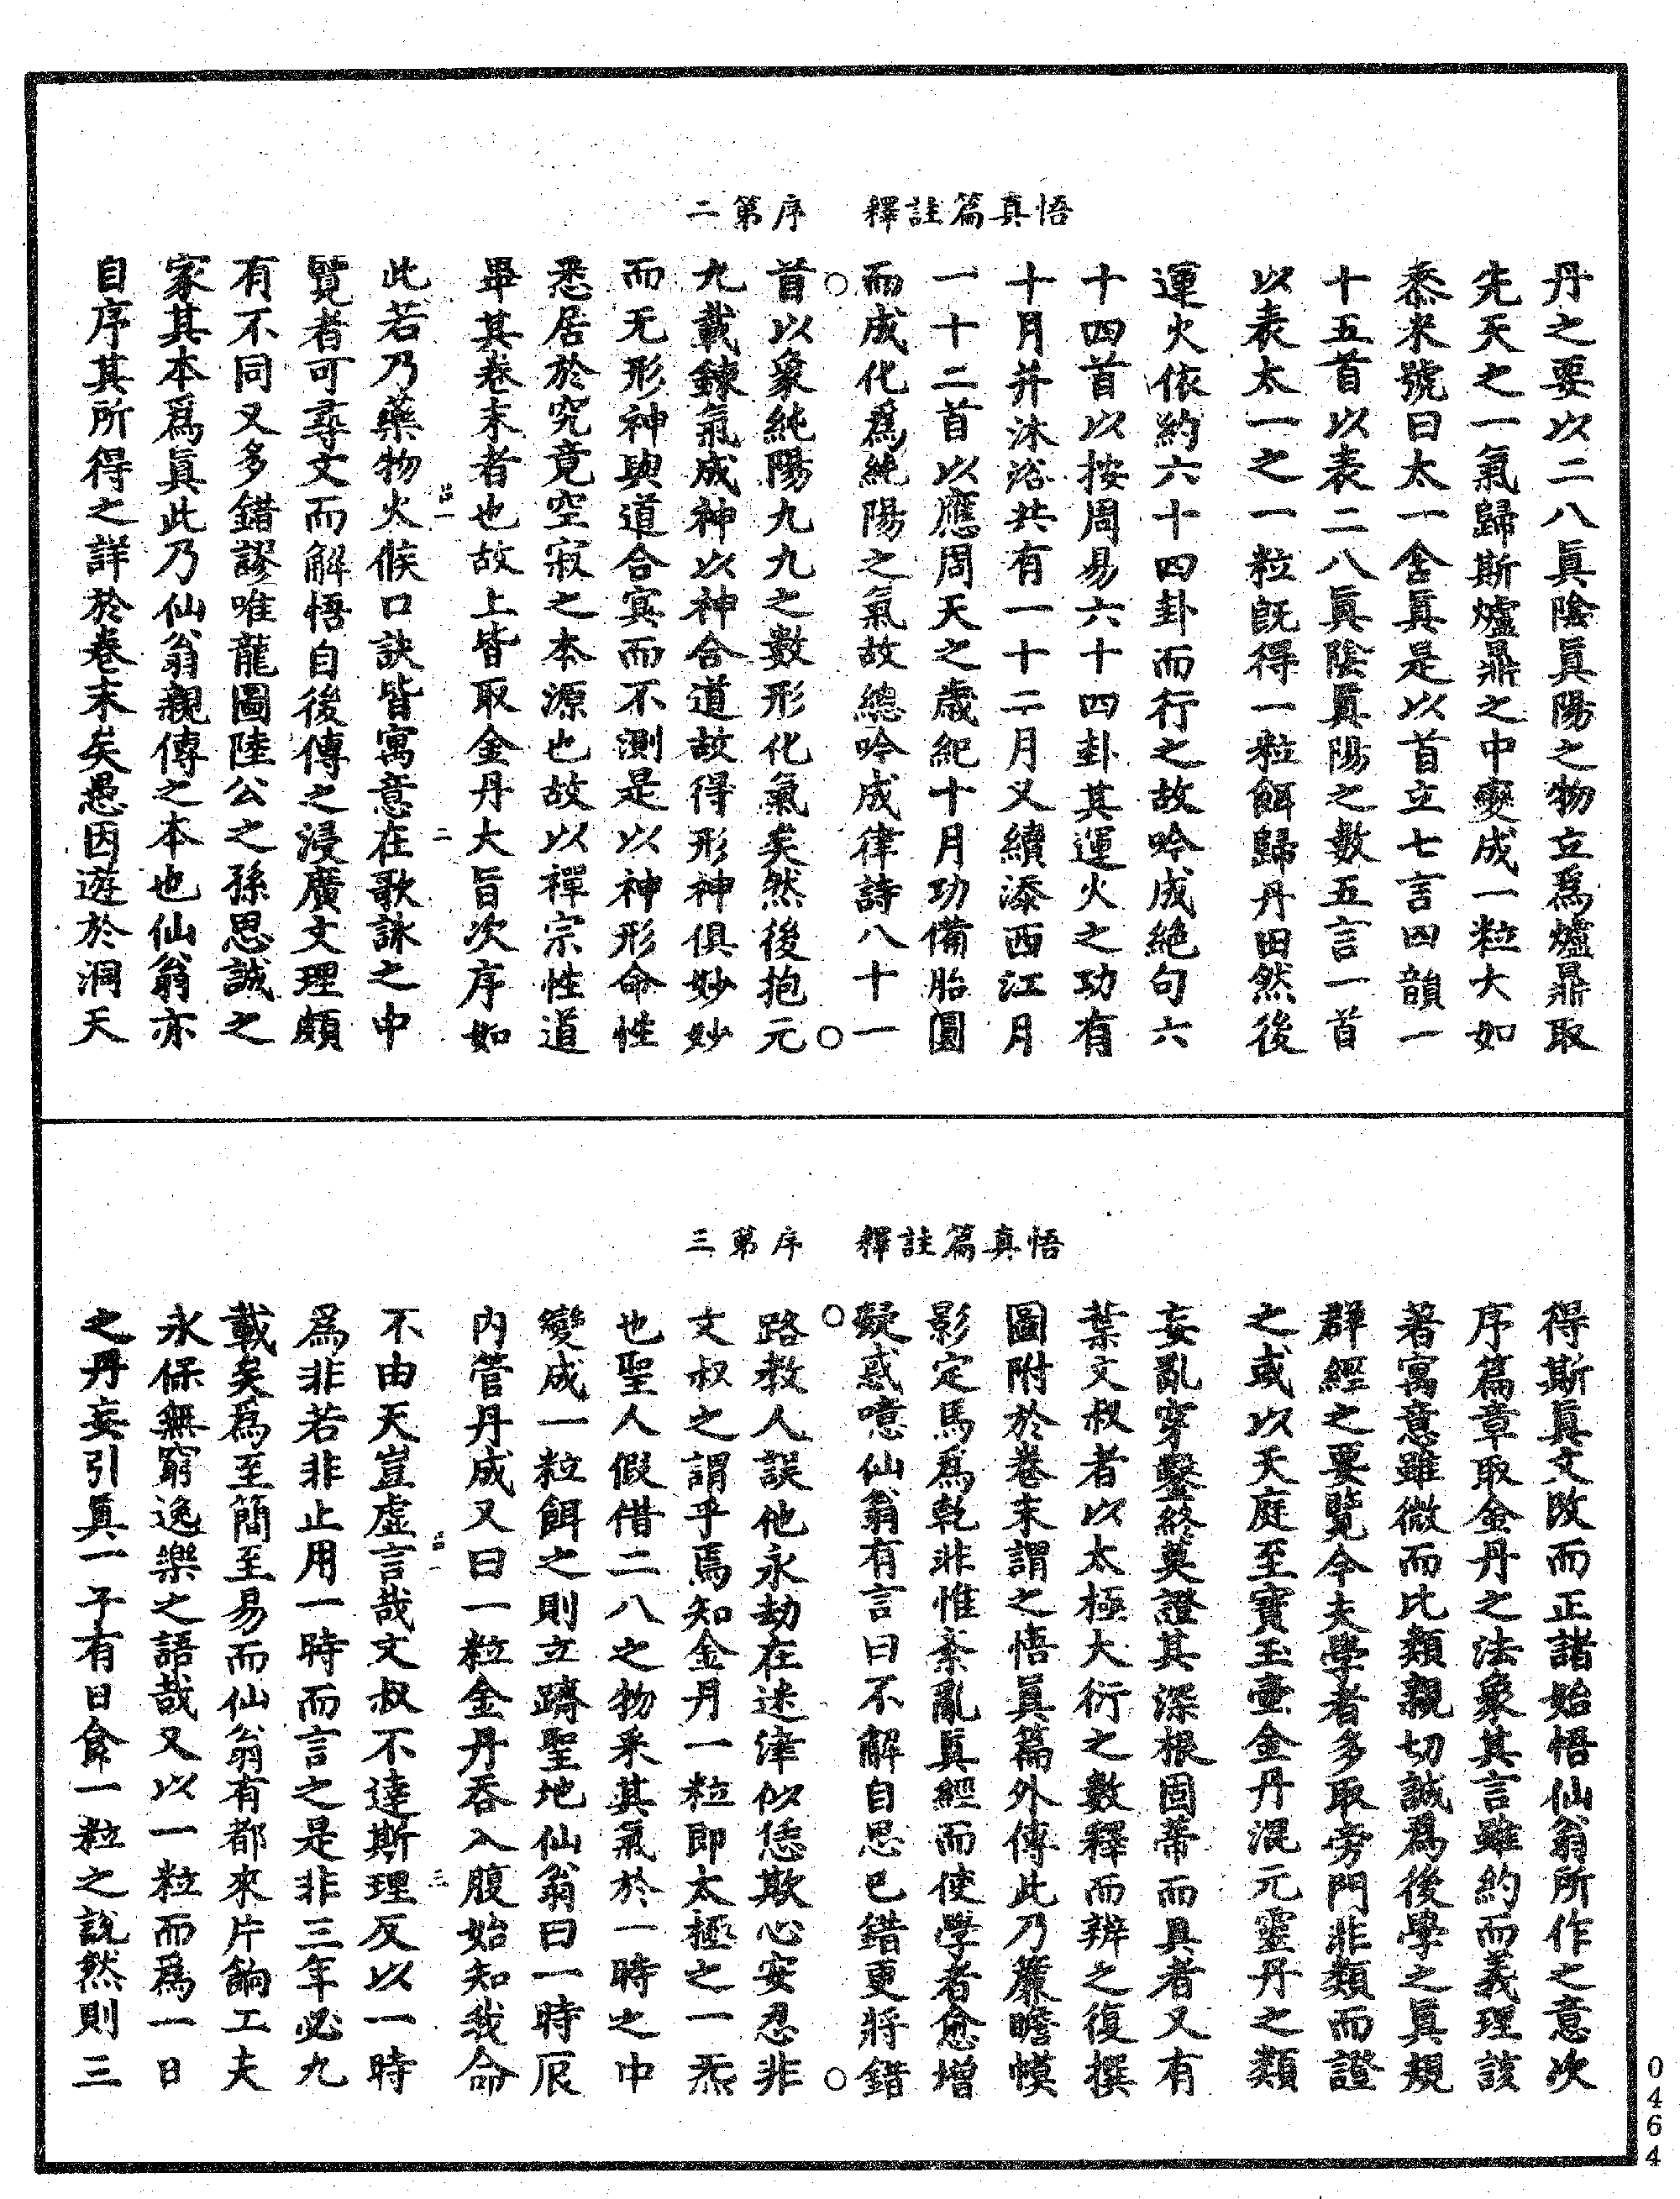 悟真篇註釋　序第二
丹之要以二八眞陰眞陽之物立爲爐鼎取
先天之一氣歸斯爐鼎之中變成一粒大如
黍米號曰太一含眞是以首立七言四韻一
十五首以表二八眞陰眞陽之數五言一首
以表太一之一粒旣得一粒餌歸丹田然後
運火依約六十四卦而行之故吟成絶句六
十四首以按周易六十四卦其運火之功有
十月并沐浴共有一十二月又續添西江月
一十二首以應周天之歲紀十月功備胎圓
而成化爲純陽之氣故總吟成律詩八十一
首以象純陽九九之數形化氣矣然後抱元
九載鍊氣成神以神合道故得形神俱妙妙
而无形神與道合㝠而不測是以神形命性
悉居於究竟空寂之本源也故以禪宗性道
畢其卷末者也故上皆取金丹大旨次序如
此若乃藥物火候口訣皆寓意在歌詠之中
覽者可尋文而解悟自後傳之浸廣文理頗
有不同又多錯謬唯龍圖陸公之孫思誠之
家其本爲眞此乃仙翁親傳之本也仙翁亦
自序其所得之詳於卷末矣愚因遊於洞天
悟真篇註釋　序第三
得斯眞文改而正諸始悟仙翁所作之意次
序篇章取金丹之法象其言雖約而義理該
著寓意雖微而比類親切誠爲後學之眞規
群經之要覽今夫學者多取旁門非類而證
之或以天庭至寶玉壷金丹混元靈丹之類
妄亂穿鑿終莫證其深根固蒂而具者又有
葉文叔者以太極大衍之數釋而辨之復撰
圖附於卷末謂之悟眞篇外傳此乃簾瞻幙
影定馬爲乾非惟紊亂眞經而使學者愈增
疑惑噫仙翁有言曰不解自思已錯更將錯
路教人誤他永劫在迷津似恁欺心安忍非
文叔之謂乎焉知金丹一粒即太極之一炁
也聖人假借二八之物采其氣於一時之中
變成一粒餌之則立躋聖地仙翁曰一時辰
内管丹成又曰一粒金丹吞入腹始知我命
不由天豈虛言哉文叔不達斯理反以一時
爲非若非止用一時而言之是非三年必九
載矣爲至簡至易而仙翁有都來片餉工夫
永保無窮逸樂之語哉又以一粒而爲一日
之丹妄引眞一子有日飡一粒之說然則三
0464